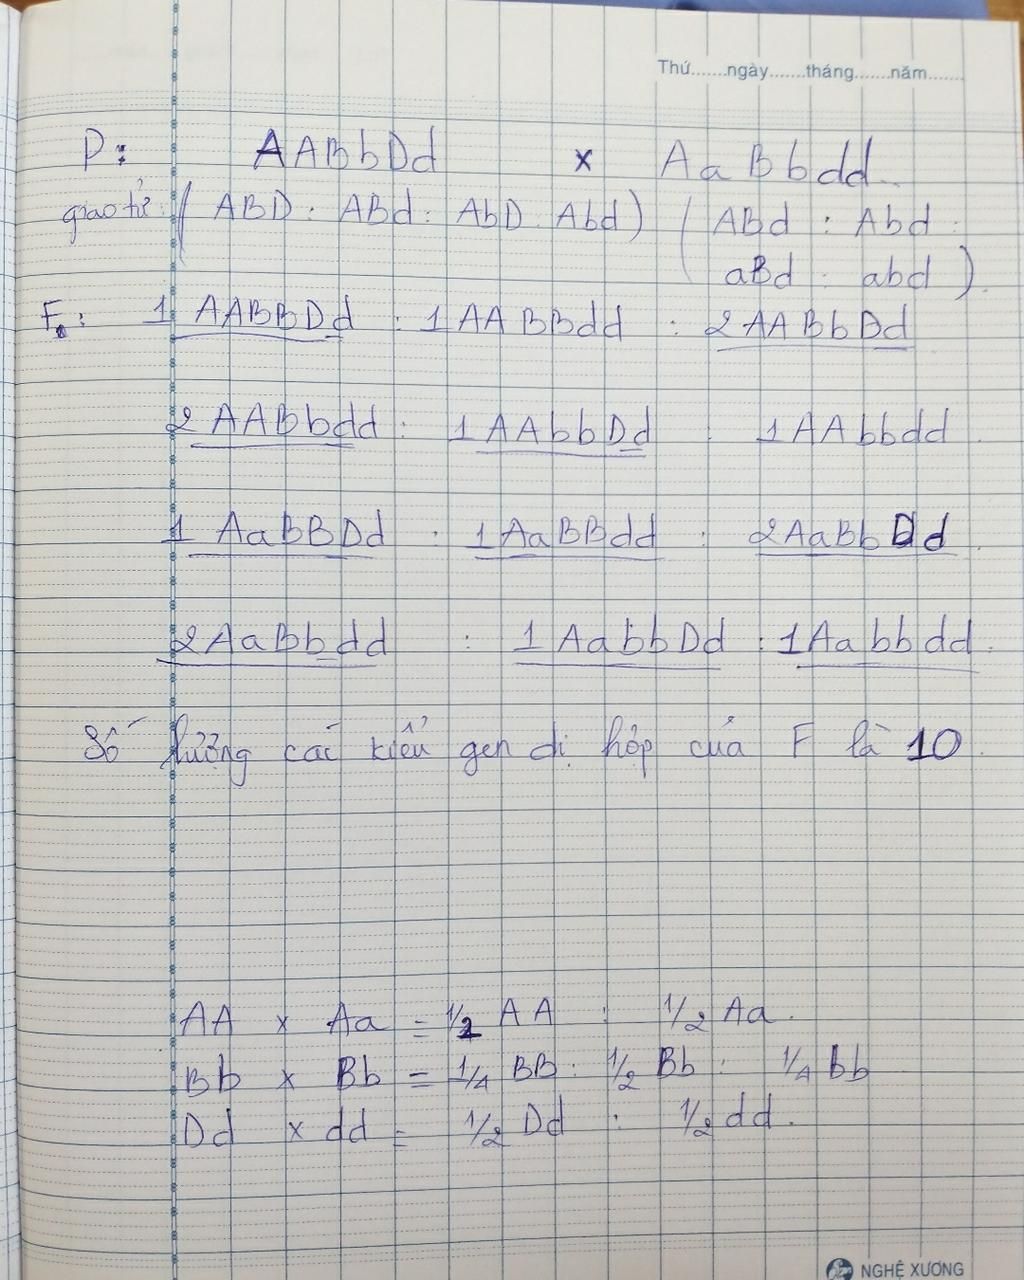 Thứ.......ngày.......tháng.......năm.......
P: AABbDd x AaBbdd
giao tử: (ABD : ABd : AbD : Abd) (ABd : Abd :
aBd : abd).
F: 1 AABBDd : 1 AABBdd : 2 AABbDd
2 AABbdd : 1 AAbbDd : 1 AAbbdd.
1 AaBBDd : 1 AaBBdd : 2 AaBbDd.
2 AaBbdd : 1 AabbDd : 1 Aabbdd.
Số lượng cái kiểu gen dị hợp của F là 10.
AA x Aa = 1/2 AA : 1/2 Aa.
Bb x Bb = 1/4 BB : 1/2 Bb : 1/4 bb
Dd x dd = 1/2 Dd : 1/2 dd.
NGHỆ XƯƠNG